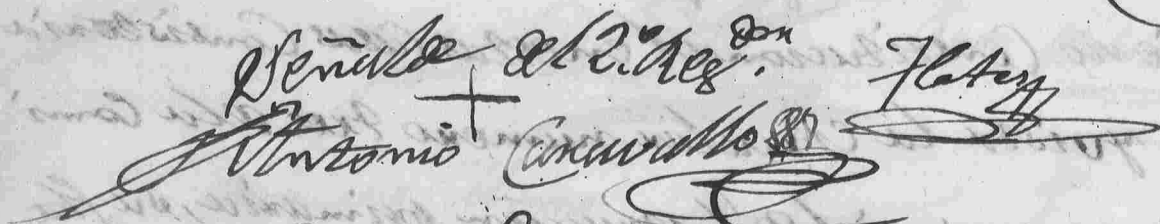 Señal de + del 2.º Reg.dor Flores
Antonio Caravallo